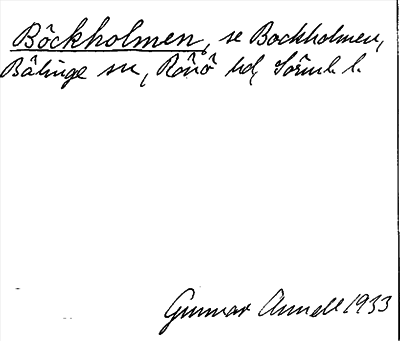 Böckholmen, se Bockholmen,
Bälinge sn, Rönö hd, Sörml. l.
Gunnar Annell 1933